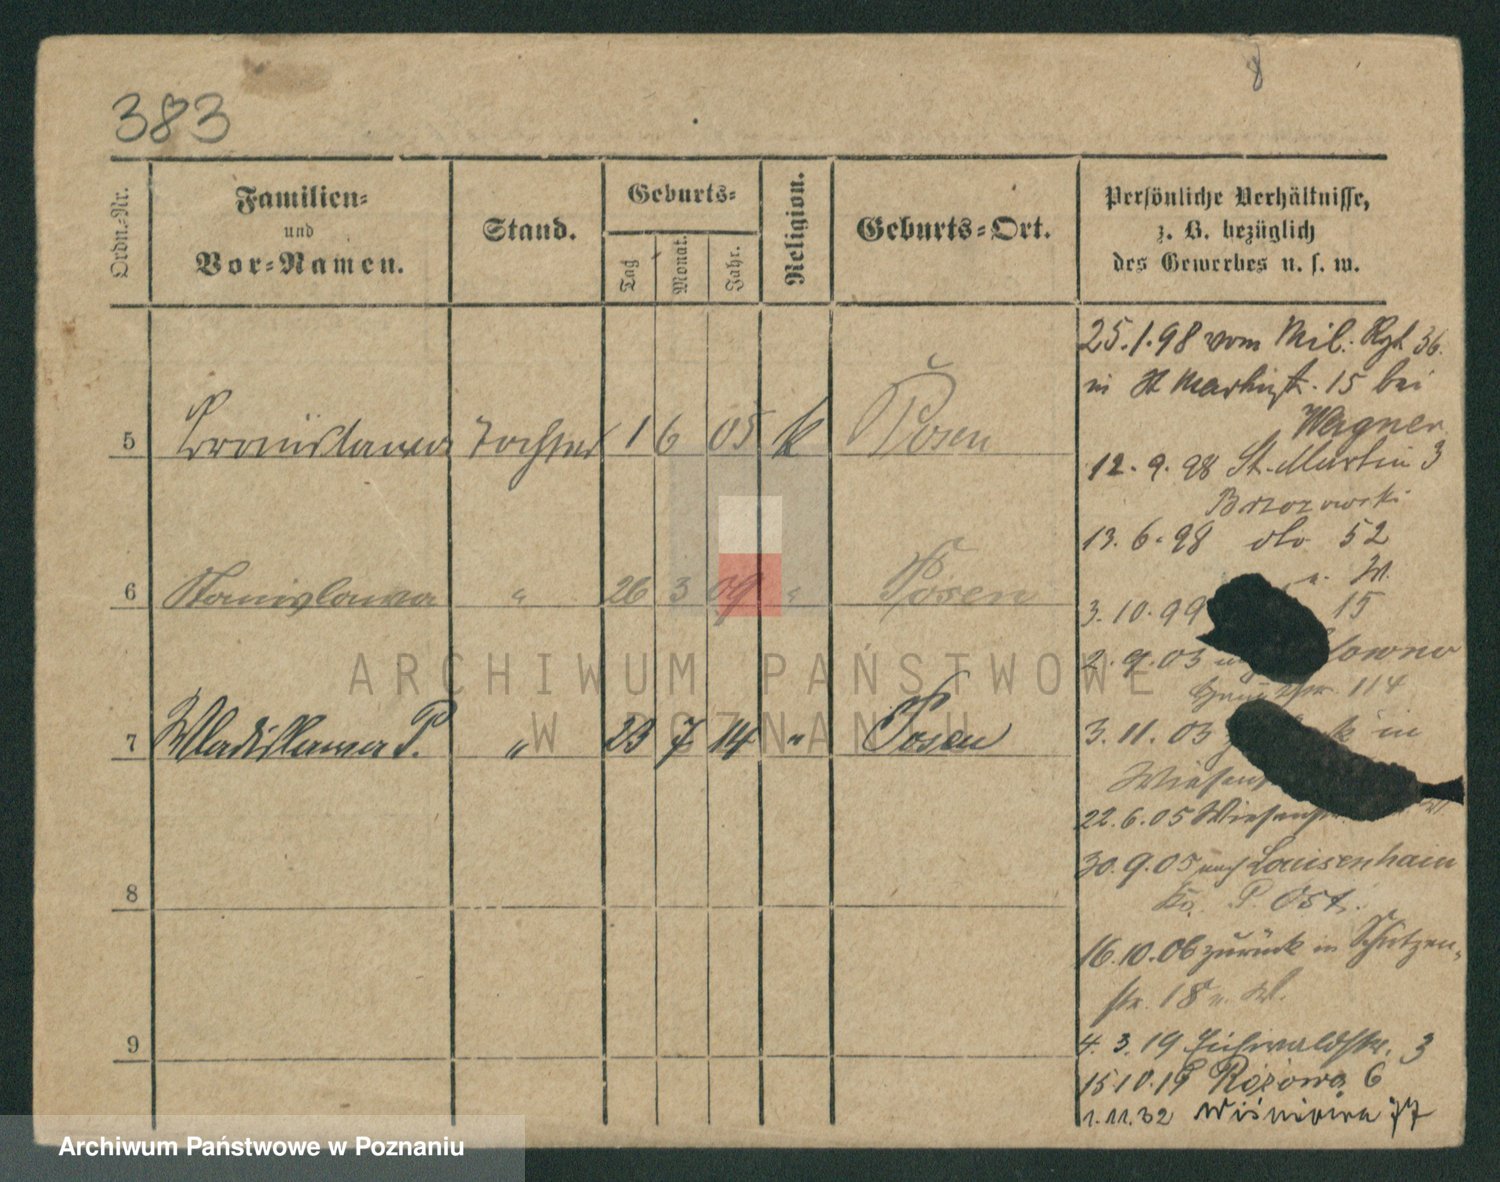 8
383
Ordn.-Nr.
Familien-
und
Vor-Namen.
Stand.
Geburts-
Tag
Monat.
Jahr.
Religion.
Geburts-Ort.
Persönliche Verhältnisse,
z. B. bezüglich
des Gewerbes u. s. w.
5 Bronislawa Tochter 1 6 05 k Posen
6 Stanislawa " 26 3 09 " Posen
7 Wladislawa P. " 23 7 14 " Posen
8
9
25.1.98 vom Mil. Rgt 36.
in St Martinstr. 15 bei
Wagner
12.9.98 St. Martin 3
Brzozowski
13.6.98 dto 52
W.
3.10.99 15
2.9.03
114
3.11.03 in
Wiesen
22.6.05 Wiesenstr.
30.9.05 nach Louisenhain
Kr. P. Ost.
16.10.06 zurück in Schützen-
str. 18 W.
4.3.19 Eichwaldstr. 3
15.10.19 Różowa 6
1.11.32 Wiśniowa 77
ARCHIWUM PAŃSTWOWE
W POZNANIU
Archiwum Państwowe w Poznaniu